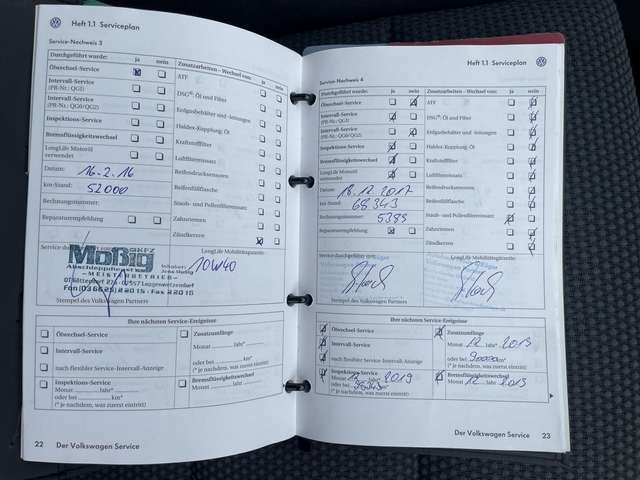 Heft 1.1 Serviceplan
Service-Nachweis 3
Durchgeführt wurde: ja nein Zusatzarbeiten – Wechsel von: ja nein
Ölwechsel-Service
ATF
Intervall-Service
(PR-Nr.: QG1)
DSG®: Öl und Filter
Intervall-Service
(PR-Nr.: QG0/QG2)
Erdgasbehälter und -leitungen
Inspektions-Service
Haldex-Kupplung: Öl
Bremsflüssigkeitswechsel
Kraftstofffilter
LongLife Motoröl
verwendet
Luftfiltereinsatz
Datum: 16.2.16
Reifendrucksensoren
km-Stand: 52000
Reifenfüllflasche
Rechnungsnummer:
Staub- und Pollenfiltereinsatz
Reparaturempfehlung
Zahnriemen
Zündkerzen
Service du
LongLife Mobilitätsgarantie:
KFZ
Moßig
Inhaber:
Abschleppdienst
MEISTERBETRIEB
10W40
Stempel des Volkswagen Partners
Ihre nächsten Service-Ereignisse
Ölwechsel-Service
Zusatzumfänge
Monat Jahr*
Intervall-Service
oder bei km*
nach flexibler Service-Intervall-Anzeige
(* je nachdem, was zuerst eintritt)
Inspektions-Service
Monat Jahr*
oder bei km*
(* je nachdem, was zuerst eintritt)
Bremsflüssigkeitswechsel
Monat Jahr
22 Der Volkswagen Service
Heft 1.1 Serviceplan
Service-Nachweis 4
Durchgeführt wurde: ja nein Zusatzarbeiten – Wechsel von: ja nein
Ölwechsel-Service
ATF
Intervall-Service
(PR-Nr.: QG1)
DSG®: Öl und Filter
Intervall-Service
(PR-Nr.: QG0/QG2)
Erdgasbehälter und -leitungen
Inspektions-Service
Haldex-Kupplung: Öl
Bremsflüssigkeitswechsel
Kraftstofffilter
LongLife Motoröl
verwendet
Luftfiltereinsatz
Datum: 18.12.2017
Reifendrucksensoren
km-Stand: 68343
Reifenfüllflasche
Rechnungsnummer: 5389
Staub- und Pollenfiltereinsatz
Reparaturempfehlung
Zahnriemen
Zündkerzen
Service durchgeführt
Stempel des Volkswagen Partners
Ihre nächsten Service-Ereignisse
Ölwechsel-Service
Zusatzumfänge
Monat 12 Jahr 2019
Intervall-Service
oder bei km
nach flexibler Service-Intervall-Anzeige
(* je nachdem, was zuerst eintritt)
Inspektions-Service
Monat 12 2019
oder bei
(* je nachdem, was zuerst eintritt)
Bremsflüssigkeitswechsel
Monat 12 Jahr 2019
Der Volkswagen Service 23